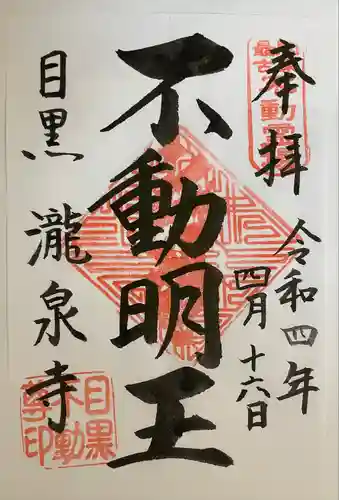 奉拝
令和四年
四月十六日
不動明王
目黒
瀧泉寺
目黒
不動
尊印